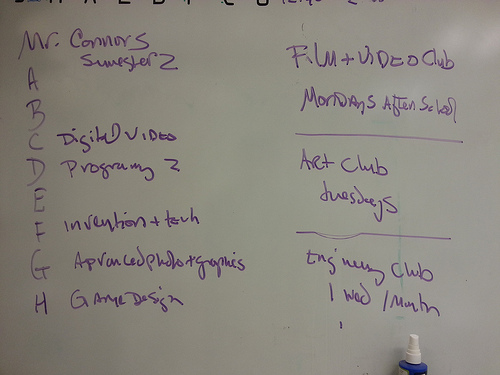 Mr. Connors
Sumester 2
A
B
C Digital VIDEO
D Programy 2
E
F invention + tech
G Advanced photo + graphics
H Game Design
Film + VIDEO Club
Mondays After School
Art Club
tuesdays
Engineery Club
1 Wed / Month